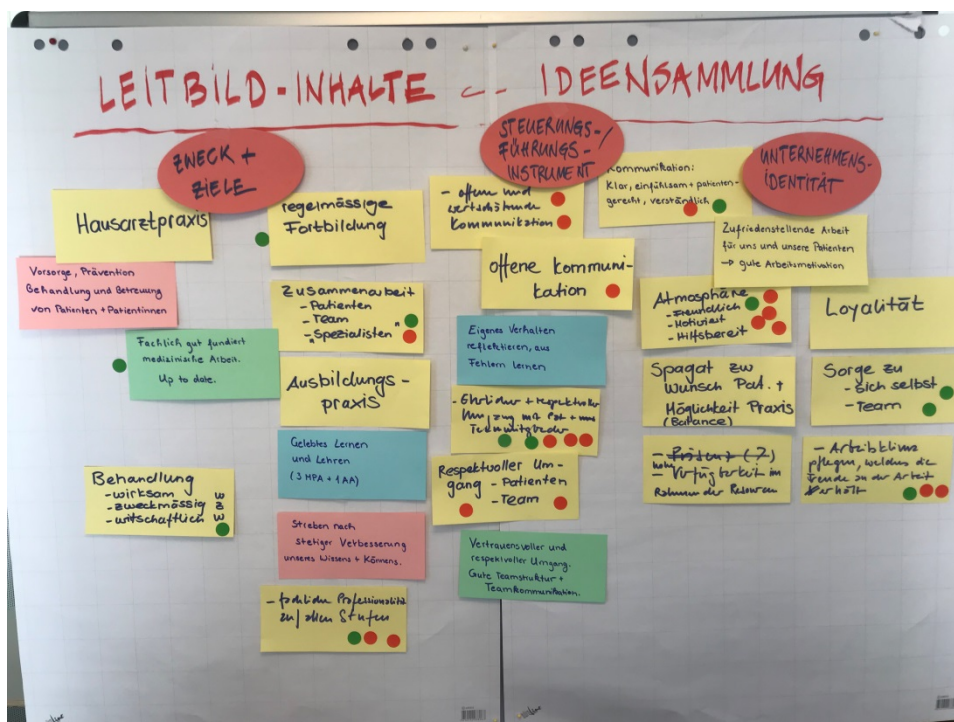 LEITBILD-INHALTE -- IDEENSAMMLUNG
ZWECK +
ZIELE
Hausarztpraxis
Vorsorge, Prävention
Behandlung und Betreuung
von Patienten + Patientinnen
Fachlich gut fundiert
medizinische Arbeit.
Up to date.
Behandlung
- wirksam W
- zweckmässig Z
- witschaftlich W
regelmässige
Fortbildung
Zusammenarbeit
- Patienten
- Team
- "Spezialisten"
Ausbildungs-
praxis
Gelebtes Lernen
und Lehren
(3 MPA + 1 AA)
Streben nach
stetiger Verbesserung
unseres Wissens + Könnens.
- fachliche Professionalität
auf allen Stufen
STEUERUNGS-/
FÜHRUNGS-
INSTRUMENT
- offene und
wertschätzende
Kommunikation
offene Kommuni-
kation
Eigenes Verhalten
reflektieren, aus
Fehlern lernen
- Ehrlicher + respektvoller
Umgang mit Pat + uns
Teammitglieder
Respektvoller Um-
gang - Patienten
- Team
Vertrauensvoller und
respektvoller Umgang.
Gute Teamstruktur +
Teamkommunikation.
UNTERNEHMENS-
IDENTITÄT
Kommunikation:
Klar, einfühlsam + patienten-
gerecht, verständlich
Zufriedenstellende Arbeit
für uns und unsere Patienten
→ gute Arbeitsmotivation
Atmosphäre
- Freundlich
- Motiviert
- Hilfsbereit
Spagat zw
Wunsch Pat. +
Möglichkeit Praxis
(Balance)
- Präsent (?)
- hohe Verfügbarkeit im
Rahmen der Resourcen
Loyalität
Sorge zu
- sich selbst
- Team
- Arbeitsklima
pflegen, welches die
Freude an der Arbeit
erhält